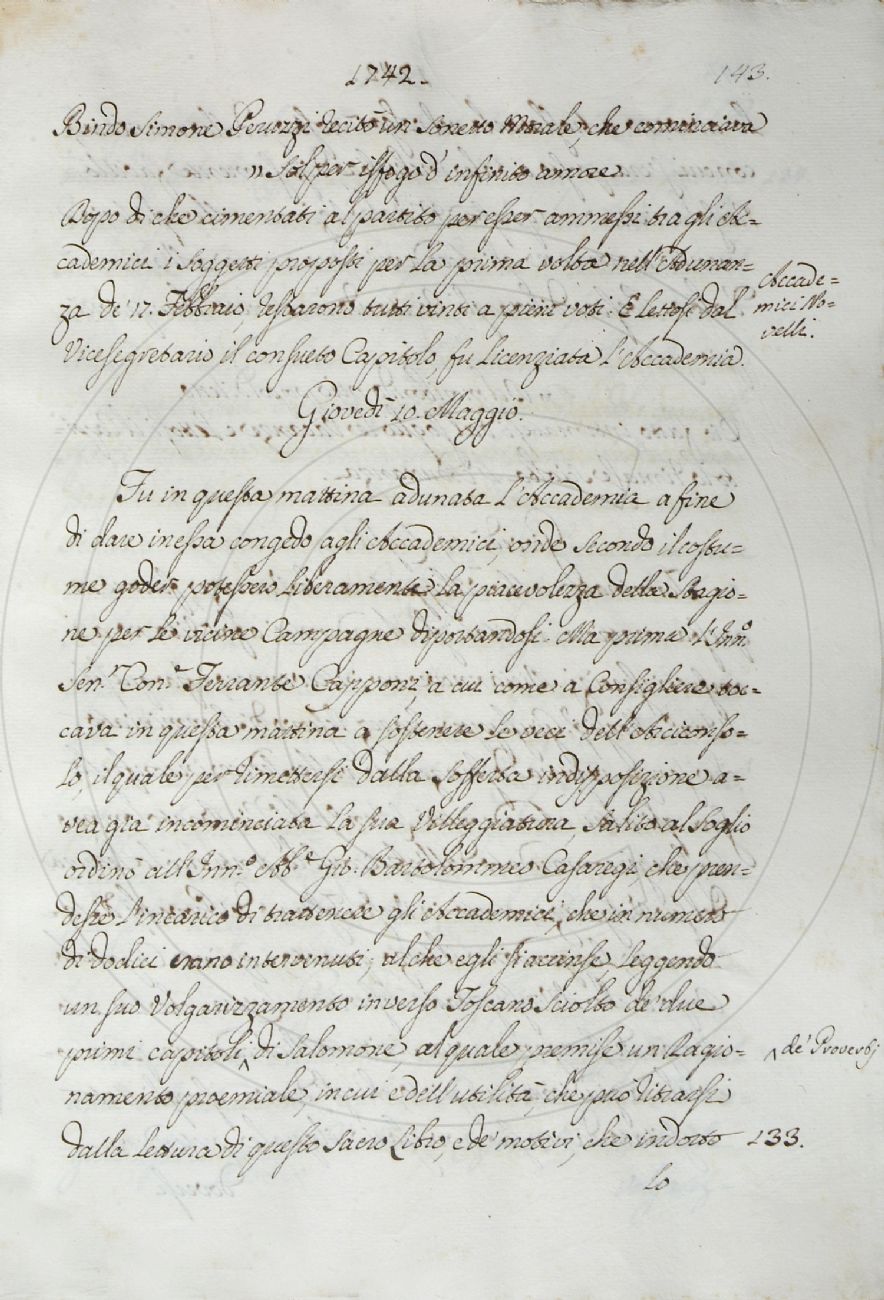 1742.
143.
Bindo Simone Peruzzi recitò un sonetto Morale, che cominciava
" Sol per isfogo d'infinito amore.
Dopo di che cimentati al partito per esser ammessi tra gli Ac=
cademici i Soggetti proposti per la prima volta nell'Adunan=
za de' 17. Febbraio, restarono tutti vinti a pieni voti. E lettosi dal
Vicesegretario il consueto Capitolo, fu licenziata l'Accademia.
Accade=
mici No=
velli.
Giovedì 10. Maggio.
Fu in questa mattina adunata l'Accademia a fine
di dare in essa congedo agli Accademici, onde secondo il costu=
me goder potessero liberamente la piacevolezza della Stagio=
ne per le vicine Campagne diportandosi. Ma prima l'Inn.º
Sen.r Con.e Ferrante Capponi, a cui come a Consigliere toc=
cava in questa mattina a sostenere le veci dell'Arciconso=
lo, il quale per rimettersi dalla sofferta indisposizione a=
vea già incominciata la sua Villeggiatura, salito al Soglio
ordinò all'Inn.º Ab.e Gio. Bartolommeo Casaregi, che pren=
desse l'incarico di trattenere gli Accademici, che in numero
di dodici erano intervenuti; al che egli si accinse, leggendo
un suo Volgarizzamento in verso Toscano sciolto de' due
primi capitoli ^ di Salomone, al quale premise un Ragio=
^ de' Proverbj
namento proemiale, in cui e dell'utilità, che può ritrarsi
dalla lettura di questo sacro Libro, e de' motivi, che indotto
133.
lo